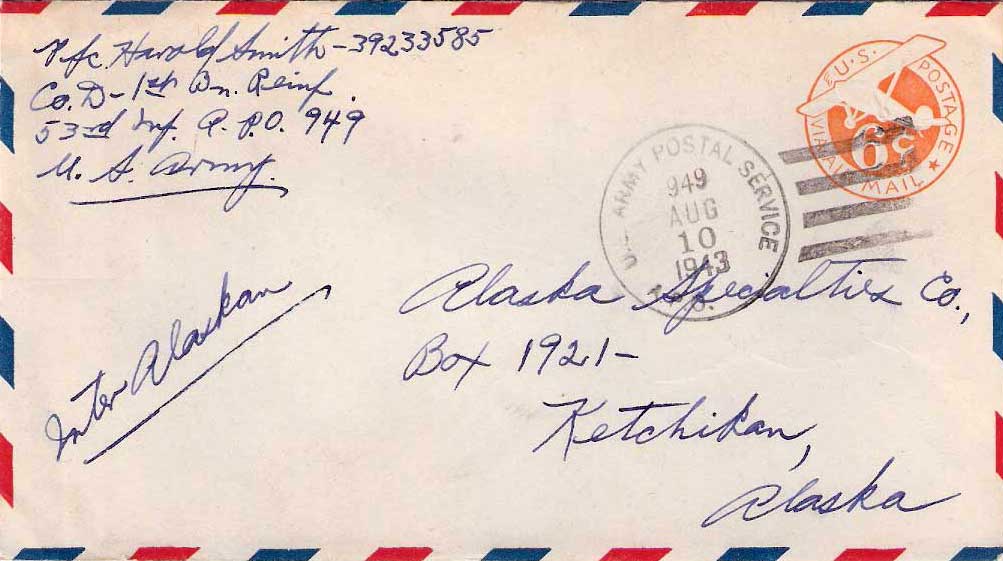 Pfc. Harold Smith - 39233585
Co. D - 1st Bn. Reinf.
53rd Inf. A. P.O. 949
U. S. Army.
U.S. POSTAGE
6¢
VIA AIR MAIL
U.S. ARMY POSTAL SERVICE
949
AUG
10
1943
A.P.O.
Inter Alaskan
Alaska Specialties Co.,
Box 1921-
Ketchikan,
Alaska